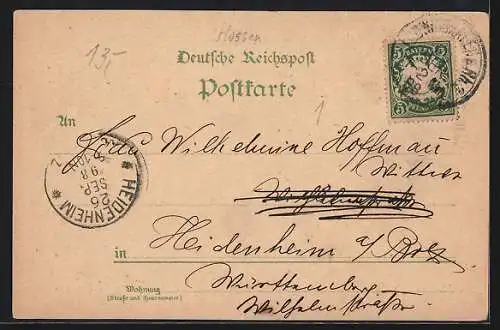 13,-
Deutsche Reichspost
Postkarte
BAYERN
5 5
1
An
Frau Wilhelmine Hoffmann
Witwe
Wilhelmstraße
HEIDENHEIM
26
SEP
98
in Heidenheim a/Brz
Württemberg
Wilhelmstraße
Wohnung
(Straße und Hausnummer)